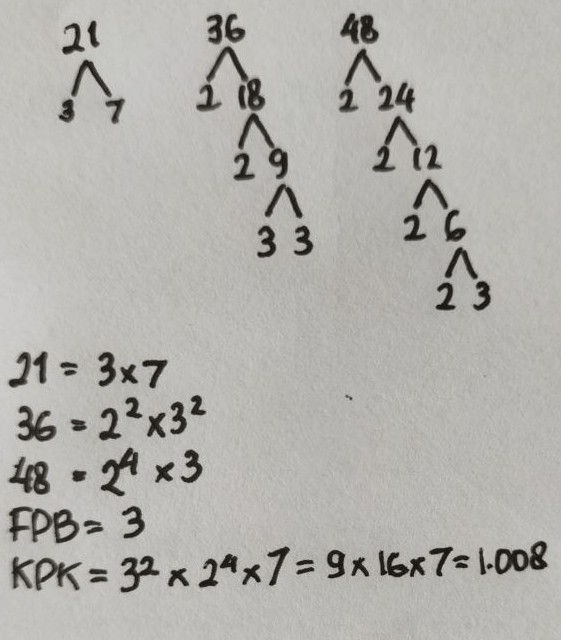 21 36 48
3 7 2 18 2 24
2 9 2 12
3 3 2 6
2 3
21 = 3×7
36 = 2² ×3²
48 = 2⁴ ×3
FPB = 3
KPK = 3² × 2⁴ × 7 = 9 × 16 × 7 = 1.008